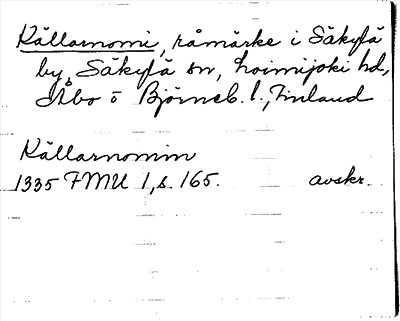 Källarnomi, råmärke i Säkylä
by, Säkylä sn, Loimijoki hd,
Åbo o Björneb. l., Finland
Källarnomin
1335 FMU 1, s. 165. avskr.